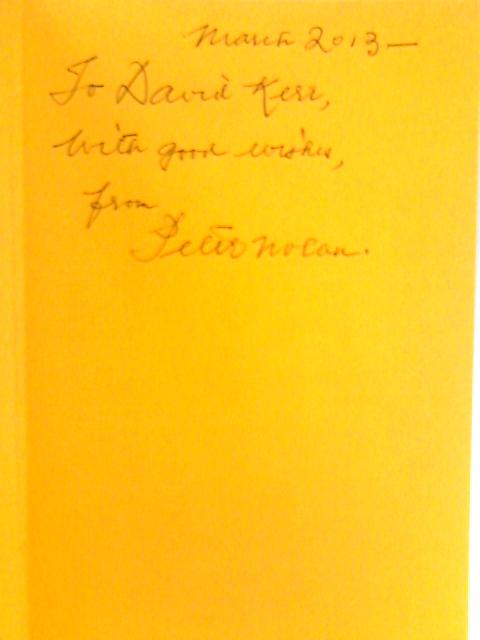 March 2013—
To David Kerr,
With good wishes,
from
Peter Nolan.